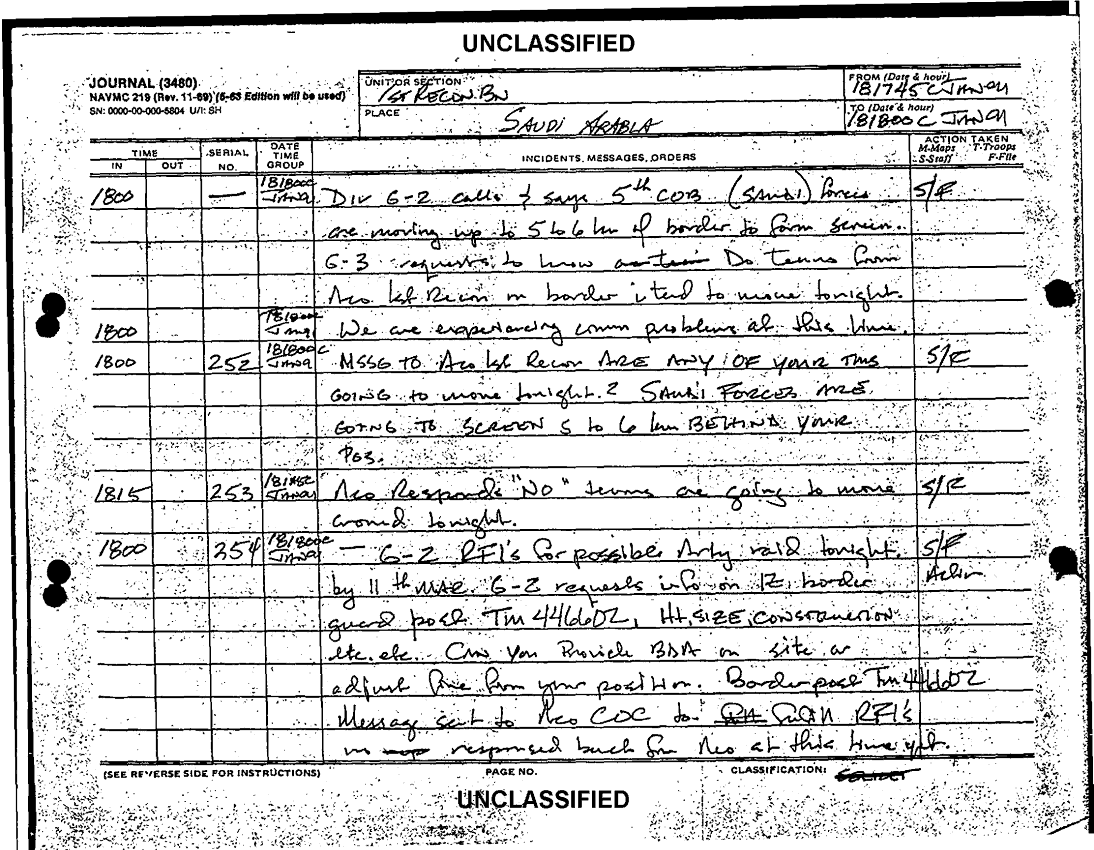 UNCLASSIFIED
JOURNAL (3480)
NAVMC 219 (Rev. 11-69) (6-63 Edition will be used)
SN: 0000-00-000-5804 U/I: SH
UNIT OR SECTION
1st RECON. BN
FROM (Date & hour)
181745 C JAN 91
PLACE
SAUDI ARABIA
TO (Date & hour)
181800 C JAN 91
TIME
IN OUT
SERIAL NO.
DATE TIME GROUP
INCIDENTS, MESSAGES, ORDERS
ACTION TAKEN
M-Maps T-Troops
S-Staff F-File
1800 — 181800C JAN 91 Div G-2 calls & says 5th COB (SAUDI) forces S/F
are moving up to 5 to 6 km of border to form screen.
G-3 requests to know Do teams from
Aco 1st Recon on border itend to move tonight.
1800 181800C JAN 91 We are experiancing comm problems at this time.
1800 252 181800C JAN 91 MSSG TO Aco 1st Recon ARE ANY OF YOUR TMS S/F
GOING to move tonight? SAUDI FORCES ARE
GOING TO SCREEN 5 to 6 km BEHIND YOUR
POS.
1815 253 JAN 91 Aco Responds "NO" teams are going to move S/F
around tonight.
1800 254 181800C JAN 91 — G-2 RFI's for possible Arty raid tonight. S/F
by 11th MAR. G-2 requests info on IZ border Action
guard post Tm 446602, Ht, SIZE, CONSTRUCTION
etc. etc. Can You Provide BDA on site or
adjust fire from your position. Border post Tm 446602
Message sent to Aco COC to RFI's
no responsed back fm Aco at this time yet.
(SEE REVERSE SIDE FOR INSTRUCTIONS)
PAGE NO.
CLASSIFICATION:
UNCLASSIFIED